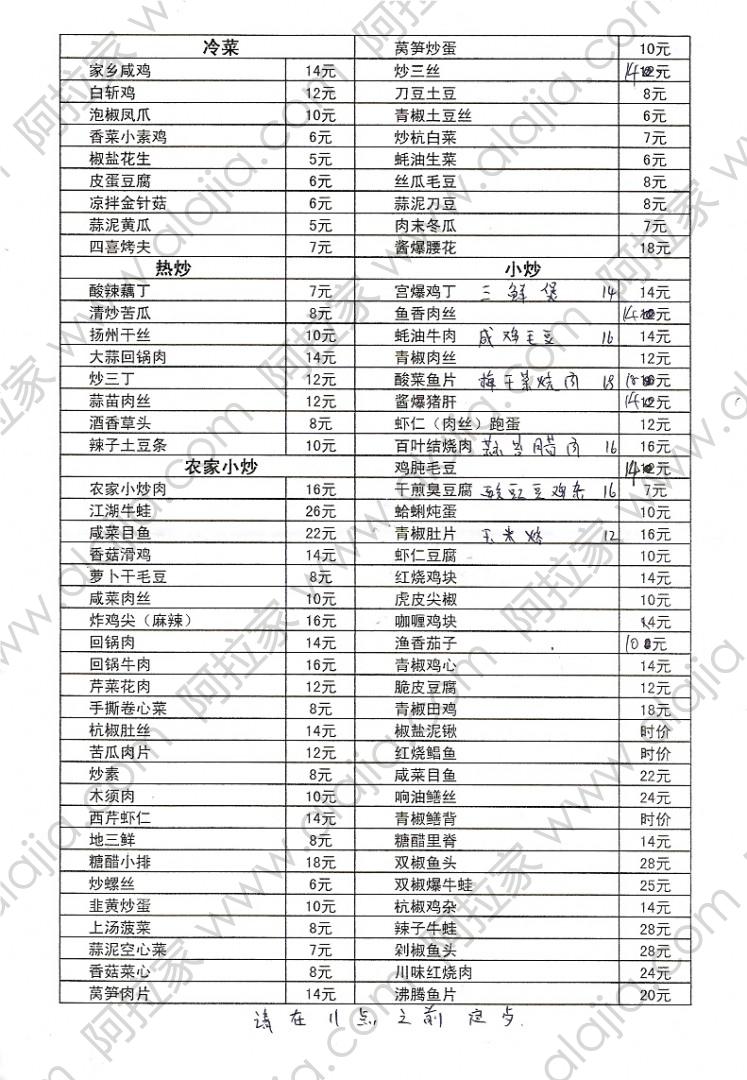 冷菜
家乡咸鸡 14元
白斩鸡 12元
泡椒凤爪 10元
香菜小素鸡 6元
椒盐花生 5元
皮蛋豆腐 6元
凉拌金针菇 6元
蒜泥黄瓜 5元
四喜烤夫 7元
热炒
酸辣藕丁 7元
清炒苦瓜 8元
扬州干丝 10元
大蒜回锅肉 14元
炒三丁 12元
蒜苗肉丝 12元
酒香草头 8元
辣子土豆条 10元
农家小炒
农家小炒肉 16元
江湖牛蛙 26元
咸菜目鱼 22元
香菇滑鸡 14元
萝卜干毛豆 8元
咸菜肉丝 10元
炸鸡尖（麻辣） 16元
回锅肉 14元
回锅牛肉 16元
芹菜花肉 12元
手撕卷心菜 8元
杭椒肚丝 14元
苦瓜肉片 12元
炒素 8元
木须肉 10元
西芹虾仁 14元
地三鲜 8元
糖醋小排 18元
炒螺丝 6元
韭黄炒蛋 10元
上汤菠菜 8元
蒜泥空心菜 7元
香菇菜心 8元
莴笋肉片 14元
莴笋炒蛋 10元
炒三丝 14元
刀豆土豆 8元
青椒土豆丝 6元
炒杭白菜 7元
蚝油生菜 6元
丝瓜毛豆 8元
蒜泥刀豆 8元
肉末冬瓜 7元
酱爆腰花 18元
小炒
宫爆鸡丁 三鲜煲 14 14元
鱼香肉丝 14元
蚝油牛肉 咸鸡毛豆 16 14元
青椒肉丝 12元
酸菜鱼片 梅干菜烧肉 18 18元
酱爆猪肝 14元
虾仁（肉丝）跑蛋 12元
百叶结烧肉 蒜苗腊肉 16 16元
鸡肫毛豆 14元
干煎臭豆腐 酸豇豆鸡杂 16 7元
蛤蜊炖蛋 10元
青椒肚片 玉米烙 12 16元
虾仁豆腐 10元
红烧鸡块 14元
虎皮尖椒 10元
咖喱鸡块 14元
渔香茄子 10元
青椒鸡心 14元
脆皮豆腐 12元
青椒田鸡 18元
椒盐泥锹 时价
红烧鲳鱼 时价
咸菜目鱼 22元
响油鳝丝 24元
青椒鳝背 时价
糖醋里脊 14元
双椒鱼头 28元
双椒爆牛蛙 25元
杭椒鸡杂 14元
辣子牛蛙 28元
剁椒鱼头 28元
川味红烧肉 24元
沸腾鱼片 20元
请在11点之前定为
阿拉家 www.alajia.com